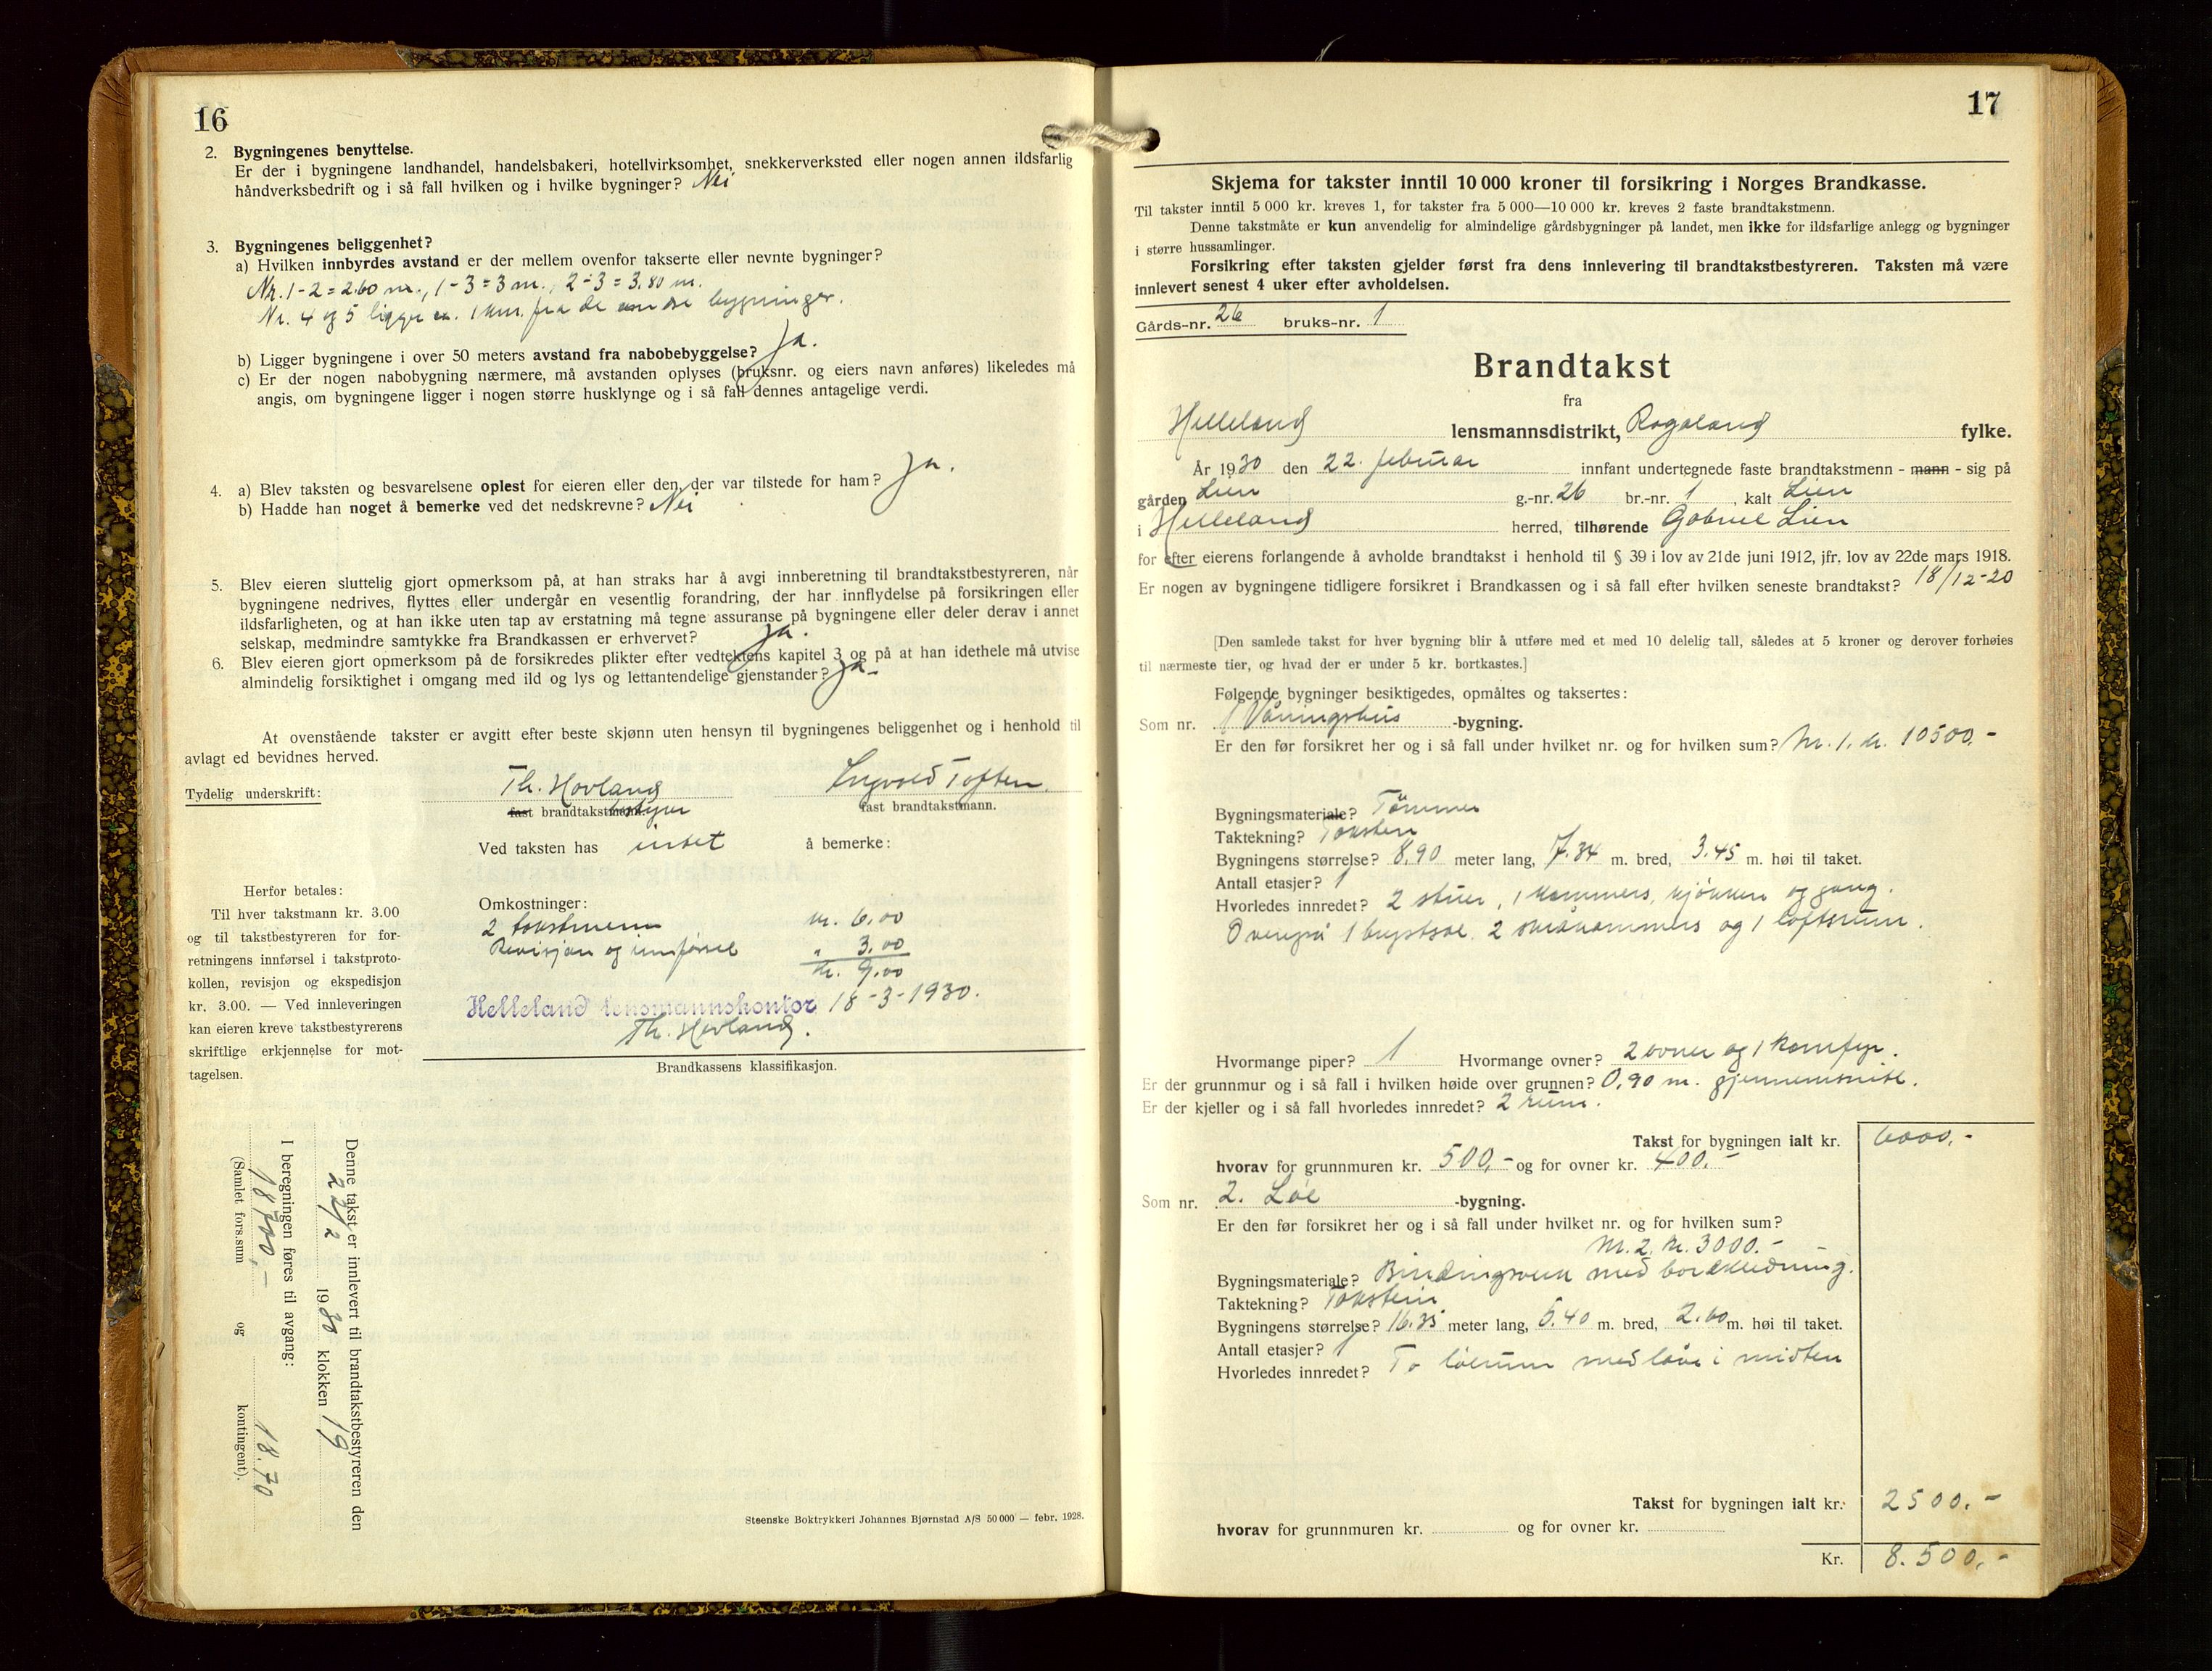 16
2. Bygningenes benyttelse.
Er der i bygningene landhandel, handelsbakeri, hotellvirksomhet, snekkerverksted eller nogen annen ildsfarlig
håndverksbedrift og i så fall hvilken og i hvilke bygninger? Nei
3. Bygningenes beliggenhet?
a) Hvilken innbyrdes avstand er der mellem ovenfor takserte eller nevnte bygninger?
Nr. 1-2 = 2.60 m., 1-3 = 3 m., 2-3 = 3.80 m.
Nr. 4 og 5 ligger ca. 1 km. fra de andre bygninger.
b) Ligger bygningene i over 50 meters avstand fra nabobebyggelse? Ja.
c) Er der nogen nabobygning nærmere, må avstanden oplyses (bruksnr. og eiers navn anføres) likeledes må
angis, om bygningene ligger i nogen større husklynge og i så fall dennes antagelige verdi.
4. a) Blev taksten og besvarelsene oplest for eieren eller den, der var tilstede for ham? Ja.
b) Hadde han noget å bemerke ved det nedskrevne? Nei
5. Blev eieren sluttelig gjort opmerksom på, at han straks har å avgi innberetning til brandtakstbestyreren, når
bygningene nedrives, flyttes eller undergår en vesentlig forandring, der har innflydelse på forsikringen eller
ildsfarligheten, og at han ikke uten tap av erstatning må tegne assuranse på bygningene eller deler derav i annet
selskap, medmindre samtykke fra Brandkassen er erhvervet? Ja.
6. Blev eieren gjort opmerksom på de forsikredes plikter efter vedtektens kapitel 3 og på at han idethele må utvise
almindelig forsiktighet i omgang med ild og lys og lettantendelige gjenstander? Ja
At ovenstående takster er avgitt efter beste skjønn uten hensyn til bygningenes beliggenhet og i henhold til
avlagt ed bevidnes herved.
Tydelig underskrift: Th. Hovland Ingvald Toften.
fast brandtakstmann. bestyrer fast brandtakstmann.
Ved taksten has intet å bemerke:
Herfor betales:
Til hver takstmann kr. 3.00
og til takstbestyreren for for-
retningens innførsel i takstproto-
kollen, revisjon og ekspedisjon
kr. 3.00. — Ved innleveringen
kan eieren kreve takstbestyrerens
skriftlige erkjennelse for mot-
tagelsen.
Omkostninger:
2 takstmenn kr. 6,00
Revisjon og innførsel " 3.00
kr. 9,00
Helleland lensmannskontor 18-3-1930.
Th. Hovland.
Brandkassens klassifikasjon.
Denne takst er innlevert til brandtakstbestyreren den
22/2 1930 klokken 19
I beregningen føres til avgang:
18700,- 18.70
(Samlet fors.sum og kontingent).
Steenske Boktrykkeri Johannes Bjørnstad A/S 50 000 — febr. 1928.
17
Skjema for takster inntil 10 000 kroner til forsikring i Norges Brandkasse.
Til takster inntil 5 000 kr. kreves 1, for takster fra 5 000—10 000 kr. kreves 2 faste brandtakstmenn.
Denne takstmåte er kun anvendelig for almindelige gårdsbygninger på landet, men ikke for ildsfarlige anlegg og bygninger
i større hussamlinger.
Forsikring efter taksten gjelder først fra dens innlevering til brandtakstbestyreren. Taksten må være
innlevert senest 4 uker efter avholdelsen.
Gårds-nr. 26 bruks-nr. 1
Brandtakst
fra
Helleland lensmannsdistrikt, Rogaland fylke.
År 1930 den 22. februar innfant undertegnede faste brandtakstmenn - mann - sig på
gården Lien g.-nr. 26 br.-nr. 1, kalt Lien
i Helleland herred, tilhørende Gabriel Lien
for efter eierens forlangende å avholde brandtakst i henhold til § 39 i lov av 21de juni 1912, jfr. lov av 22de mars 1918.
Er nogen av bygningene tidligere forsikret i Brandkassen og i så fall efter hvilken seneste brandtakst? 18/12-20
[Den samlede takst for hver bygning blir å utføre med et med 10 delelig tall, således at 5 kroner og derover forhøies
til nærmeste tier, og hvad der er under 5 kr. bortkastes.]
Følgende bygninger besiktigedes, opmåltes og taksertes:
Som nr. 1 Våningshus -bygning.
Er den før forsikret her og i så fall under hvilket nr. og for hvilken sum? Nr. 1. kr. 10500,-
Bygningsmateriale? Tømmer
Taktekning? Taksten
Bygningens størrelse? 8,90 meter lang, 7.34 m. bred, 3.45 m. høi til taket.
Antall etasjer? 1
Hvorledes innredet? 2 stuer, 1 kammers, kjøkken og gang.
Ovenpå 1 brystsal. 2 småkammers og 1 loftsrum.
Hvormange piper? 1 Hvormange ovner? 2 ovner og 1 komfyr.
Er der grunnmur og i så fall i hvilken høide over grunnen? 0,90 m. gjennemsnitl.
Er der kjeller og i så fall hvorledes innredet? 2 rum.
Takst for bygningen ialt kr. 6000,-
hvorav for grunnmuren kr. 500,- og for ovner kr. 400.-
Som nr. 2. Løe -bygning.
Er den før forsikret her og i så fall under hvilket nr. og for hvilken sum?
Nr. 2. kr. 3000.-
Bygningsmateriale? Bindingsverk med bordkledning.
Taktekning? Takstein
Bygningens størrelse? 16.35 meter lang, 5.40 m. bred, 2.60 m. høi til taket.
Antall etasjer? 1
Hvorledes innredet? To løerum med låve i midten
Takst for bygningen ialt kr. 2500.-
hvorav for grunnmuren kr. og for ovner kr.
Kr. 8.500,-